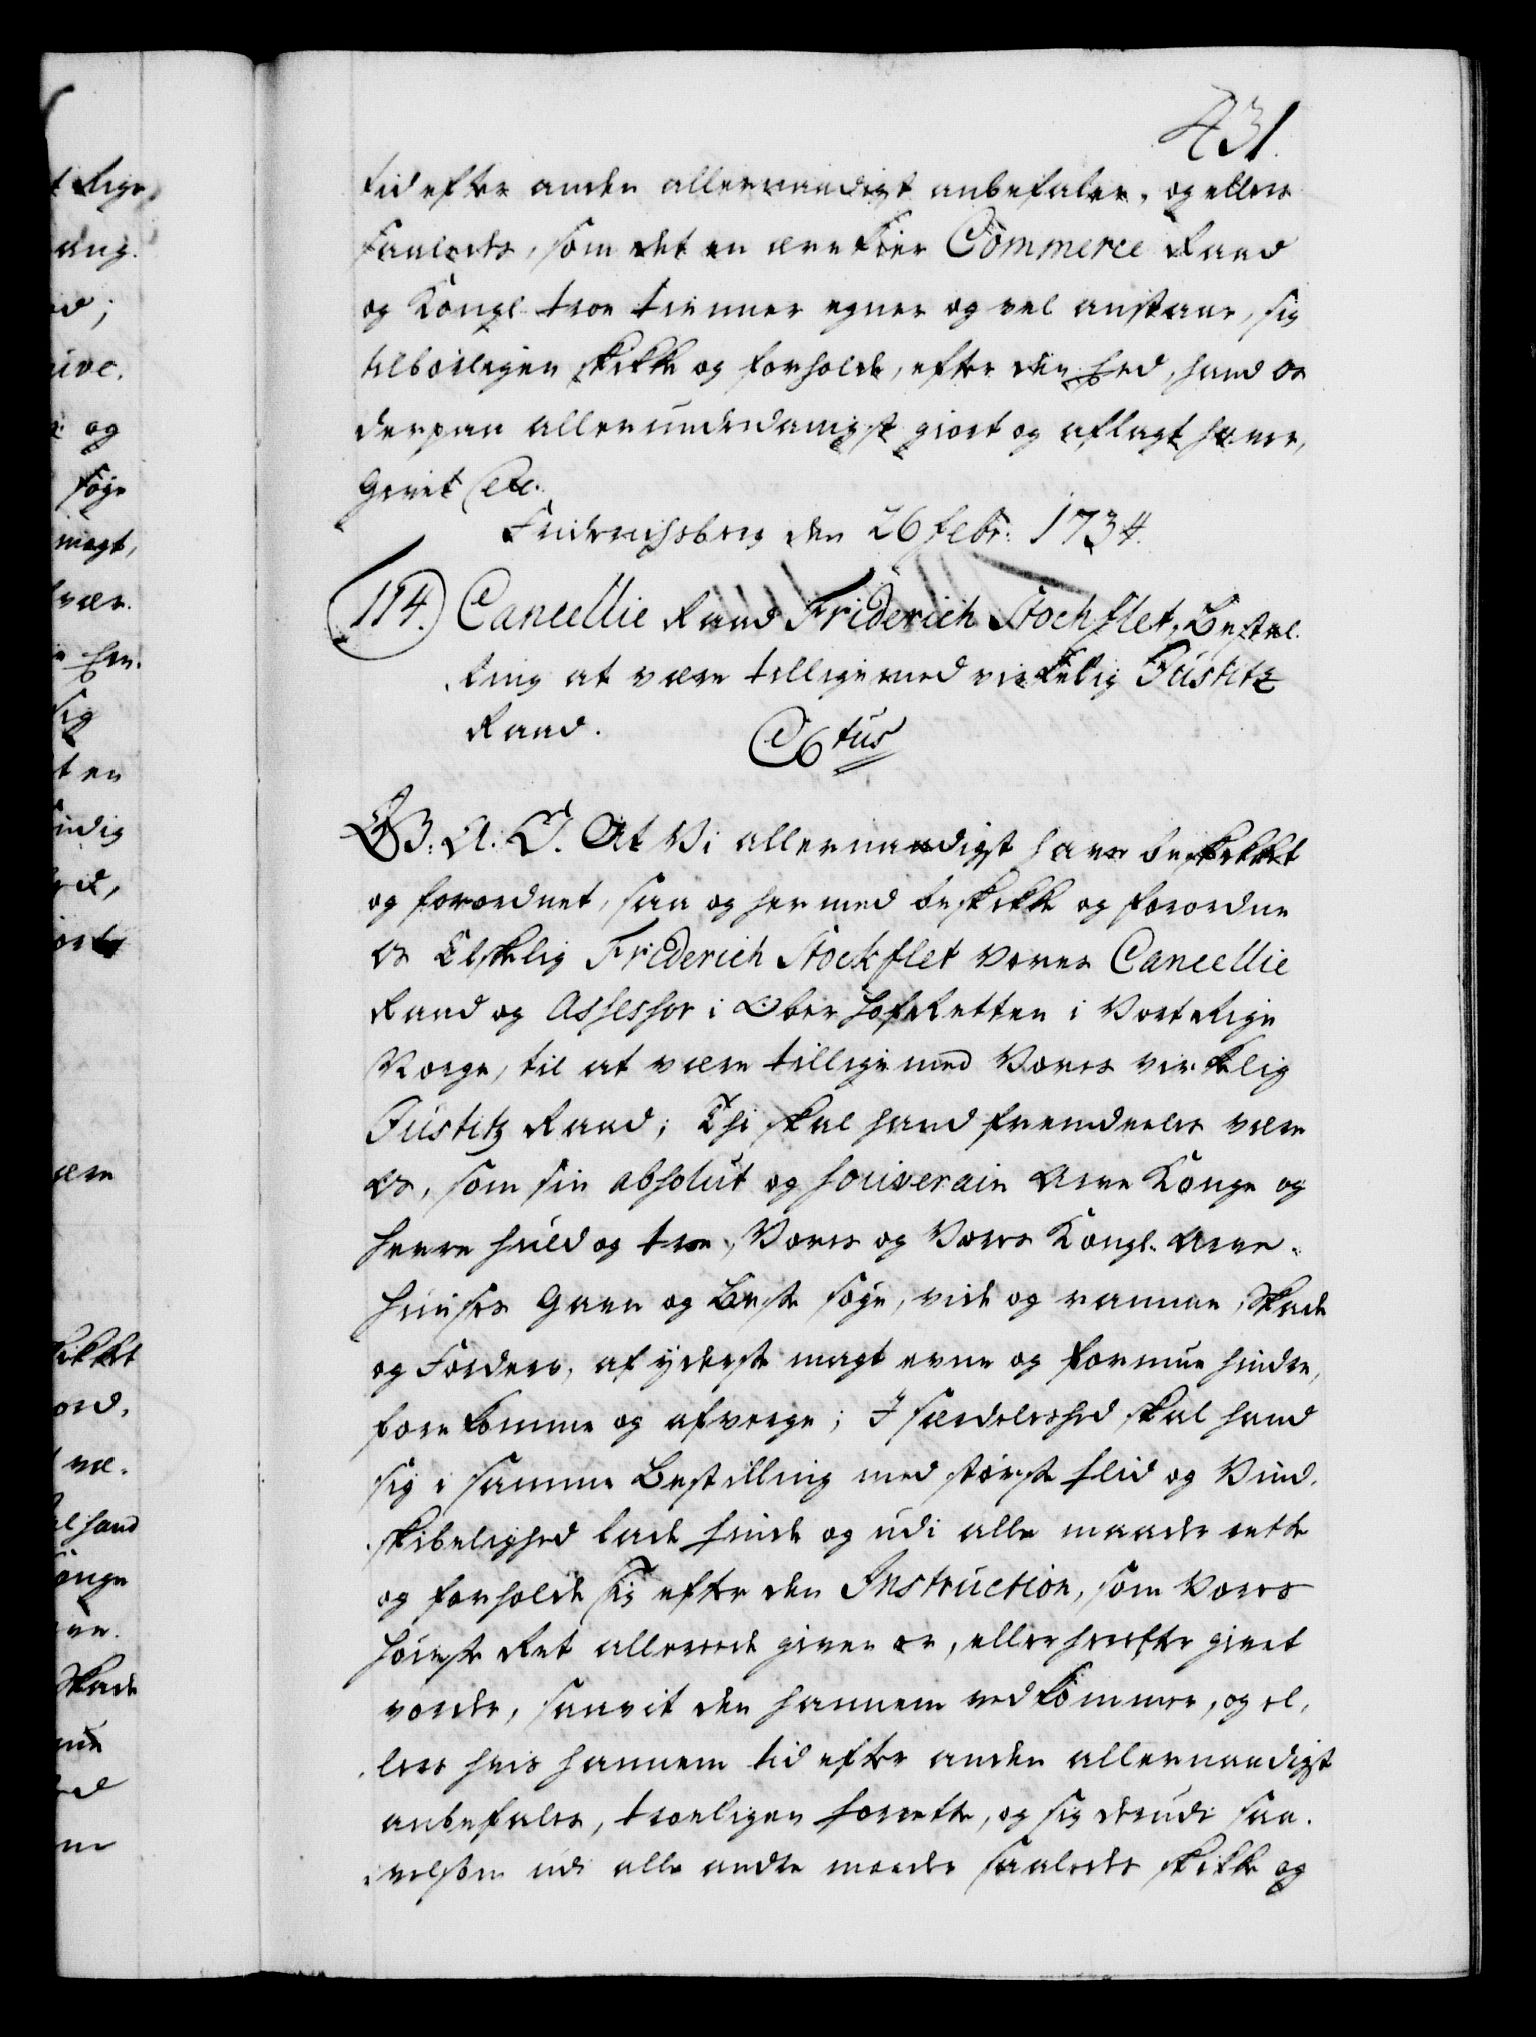 431.
tid efter anden allernaadigst anbefaler, og ellers
saaledes, som det en ære kier Commerce Raad
og Kongl. troe tienner egner og vel anstaar, sig
tilbørligen skikke og forholde, efter den Eed, hand os
derpaa allerunderdanigst giort og aflagt haver,
Givet etc.
Friderichsberg den 26 febr: 1734.
114.) Cancellie Raad Friderich Stochflet, Bestal-
ling at være tillige med virkelig Justitz
Raad.
C6tus
G. B: A: V. At Vi allernaadigst haver beskikket
og forordnet, saa og her med beskikke og forordne
os Elskelig Friderich Stockflet Vores Cancellie
Raad og Assessor i Ober Hof Retten i Vort Rige
Norge, til at være tillige med Vores virkelig
Justitz Raad; Thi skal hand fremdeeles være
os, som sin absolut og souverain Arve Konge og
Herre huld og troe, Vores og Vores Kongl. Arve-
Huuses Gavn og Beste søge, vide og ramme, Skade
og Forderv, af yderste magt evne og formue hindre,
forekomme og afverge; I særdeleshed skal hand
sig i samme Bestilling med største flid og Vind-
skibelighed lade finde og udi alle maader rette
og forholde sig efter den Instruction, som Vores
Høieste Ret allerede given er, eller herefter givet
vorder, saavit den hannem vedkommer, og el-
lers hvis hannem tid efter anden allernaadigst
anbefales, troeligen forrette, og sig derudi saa-
velsom udi alle andre maader saaledes skikke og